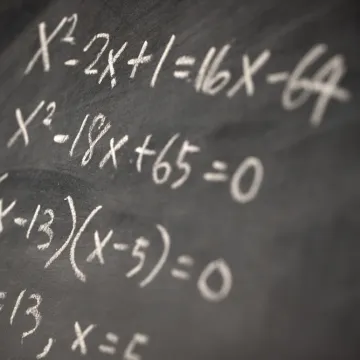 x²-2x+1=16x-64
x²-18x+65=0
x-13)(x-5)=0
=13, x=5